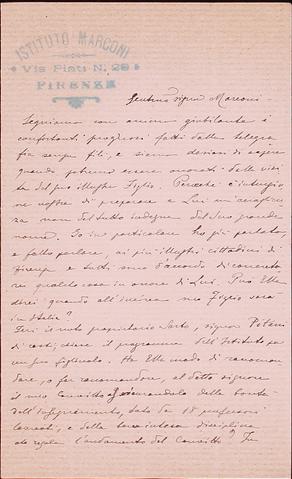 ISTITUTO MARCONI
Via Piati N. 29
FIRENZE
Gentma Sigra Marconi -
Seguiamo con animo giubilante i
confortanti progressi fatti dalla telegra
fia senza fili, e siamo desiosi di sapere
quando potremo essere onorati della visi
ta del suo illustre Figlio. Perché è intenzio
ne nostra di preparare a Lui un'accoglien
za non del tutto indegna del suo grande
nome. Io in particolare ho già parlato,
e fatto parlare, ai più illustri cittadini di
Firenze e tutti sono d'accordo di concreta
re qualche cosa in onore di Lui. Può Ella
dirci quando all'incirca suo Figlio sarà
in Italia?
Ieri il noto proprietario sarto, signor
di certi chiese il programma dell'Istituto pa
un suo figliuolo. Ha Ella modo di raccoman
dare, o far raccomandare, al detto signore
il mio Convitto, della bontà
dell'insegnamento, dato da 18 professori
laureati, e della disciplina
che regola l'andamento del Convitto? In